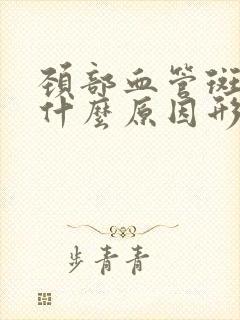 頚部血管斑
什麼原因形
步青青